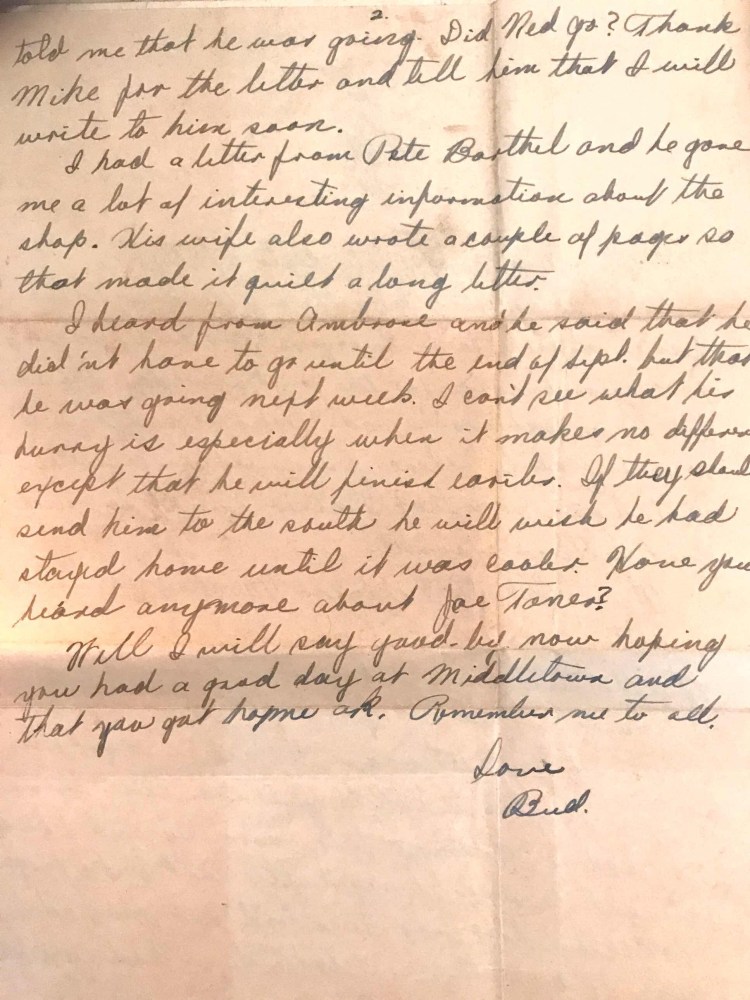 2.
told me that he was going. Did Ned go? Thank
Mike for the letter and tell him that I will
write to him soon.
I had a letter from Pete Barthel and he gave
me a lot of interesting information about the
shop. His wife also wrote a couple of pages so
that made it quiet a long letter.
I heard from Ambrose and he said that he
did'nt have to go until the end of Sept. but that
he was going next week. I can't see what his
hurry is especially when it makes no differen
except that he will finish earlier. If they shoul
send him to the south he will wish he had
stayed home until it was cooler. Have you
heard anymore about Joe Toner?
Well I will say good-by now hoping
you had a good day at Middletown and
that you got home ok. Remember me to all.
Love
Bud.